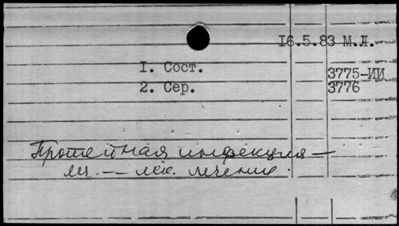 16.5.83 М.Л.
I. Сост. 3775-ИИ
2. Сер. 3776
Протейная инфекция —
леч. — лек. лечение.